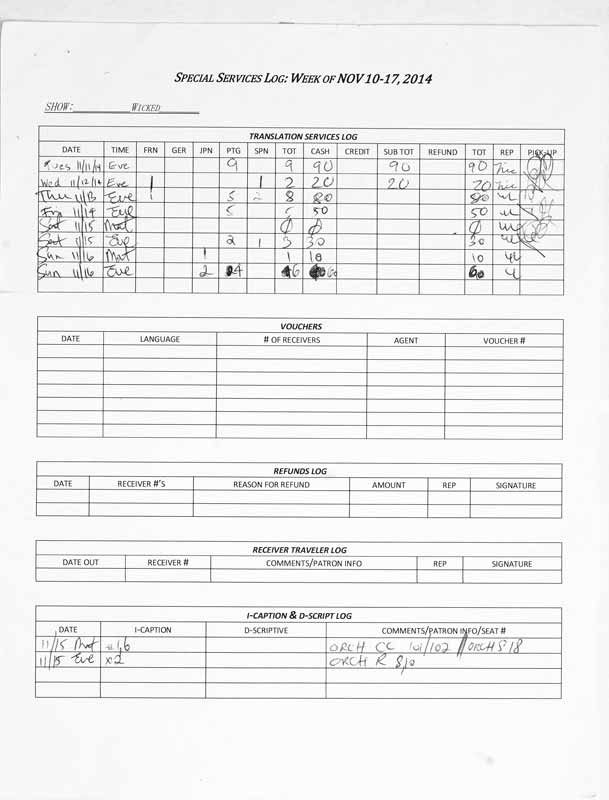 SPECIAL SERVICES LOG: WEEK OF NOV 10-17, 2014
SHOW: WICKED
TRANSLATION SERVICES LOG
DATE TIME FRN GER JPN PTG SPN TOT CASH CREDIT SUB TOT REFUND TOT REP PICK-UP
Tues 11/11/14 Eve 9 9 90 90 90
Wed 11/12/14 Eve 1 1 2 20 20 20
Thu 11/13 Eve 1 5 2 8 80 80
Fri 11/14 Eve 5 50 50
Sat 11/15 Mat Ø Ø Ø
Sat 11/15 Eve 2 1 3 30 30
Sun 11/16 Mat 1 1 10 10
Sun 11/16 Eve 2 4 6 60 60
VOUCHERS
DATE LANGUAGE # OF RECEIVERS AGENT VOUCHER #
REFUNDS LOG
DATE RECEIVER #'S REASON FOR REFUND AMOUNT REP SIGNATURE
RECEIVER TRAVELER LOG
DATE OUT RECEIVER # COMMENTS/PATRON INFO REP SIGNATURE
I-CAPTION & D-SCRIPT LOG
DATE I-CAPTION D-SCRIPTIVE COMMENTS/PATRON INFO/SEAT #
11/15 Mat ORCH CC 101/102 // ORCH S 18
11/15 Eve x2 ORCH R